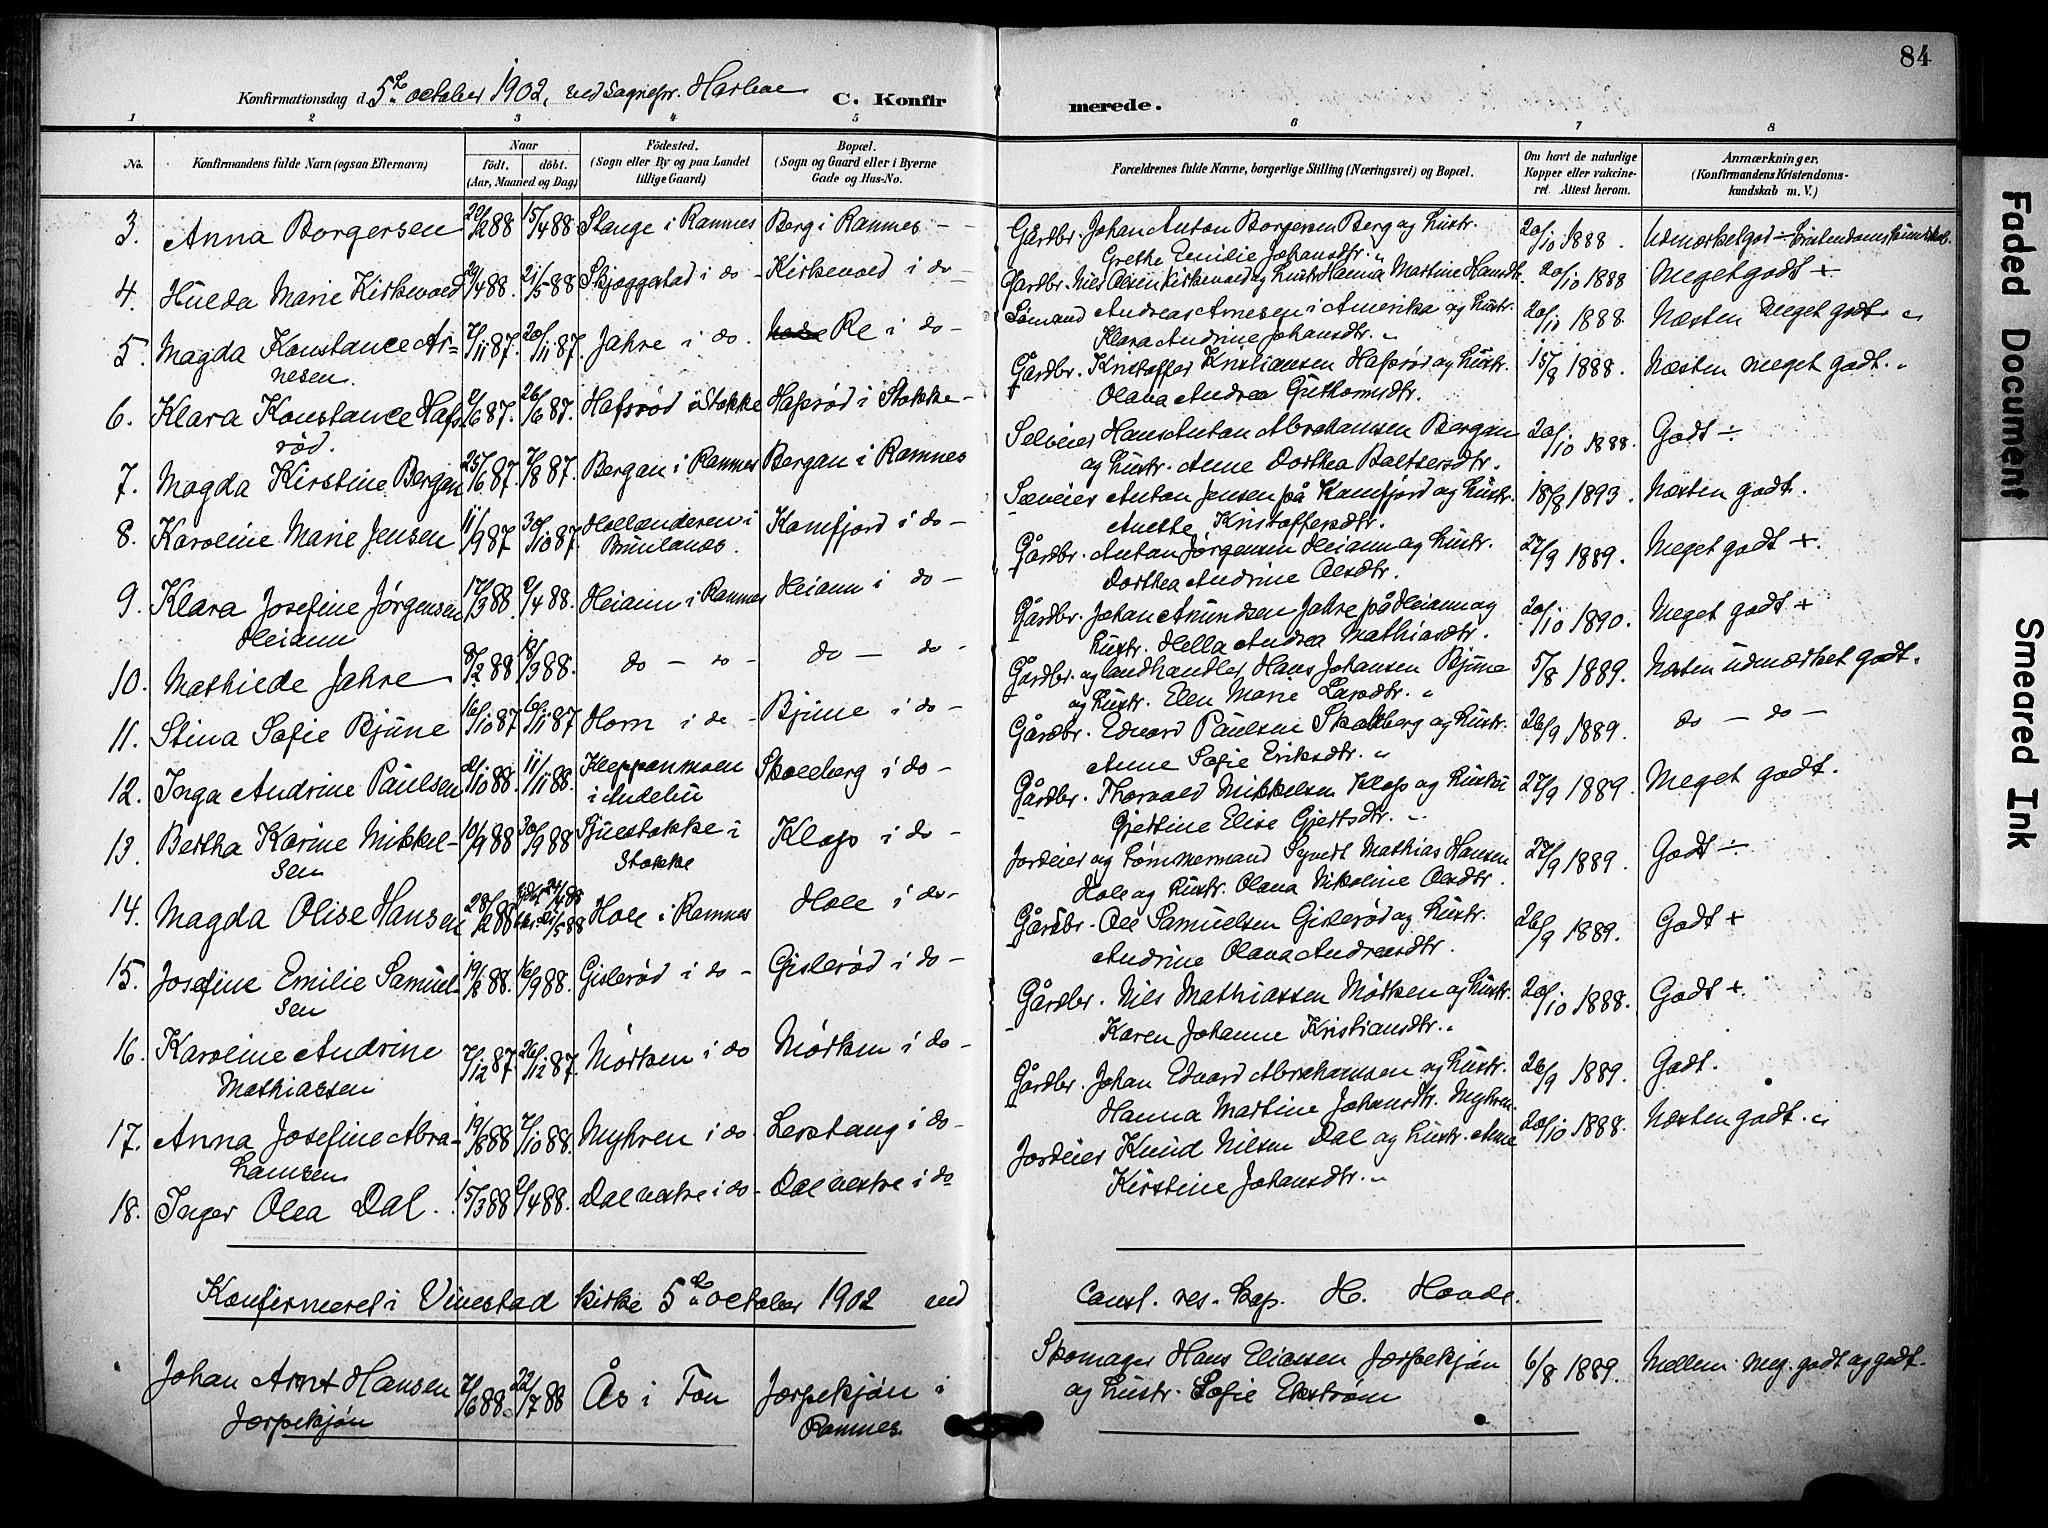 84
Konfirmationsdag d. 5te october 1902, ved sognepr. Harboe C. Konfirmerede.
1 2 3 4 5 6 7 8
No. Konfirmandens fulde Navn (ogsaa Efternavn) Naar født. døbt. (Aar, Maaned og Dag) Fødested. (Sogn eller By og paa Landet tillige Gaard) Bopæl. (Sogn og Gaard eller i Byerne Gade og Hus-No. Forældrenes fulde Navne, borgerlige Stilling (Næringsvei) og Bopæl. Om havt de naturlige Kopper eller vakcineret. Attest herom. Anmærkninger. (Konfirmandens Kristendomskundskab m. V.)
3. Anna Borgersen 15/4 88 Stange i Ramnes Berg i Ramnes - Gårdbr. Johan Anton Borgersen Berg og hustr. 20/10 1888. Udmærket god ÷ kristendomskundskab.
Grethe Emilie Johansdtr. "
4. Hulda Marie Kirkevold 29/4 88. 21/5 88 Skjeggestad i do - Kirkevold i do - Gårdbr. Nils Olsen Kirkevold og hustr. Hanna Martine Hansdt. 20/10 1888 Meget godt +
5. Magda Konstance Ar- 7/11 87. 20/11 87. Jahre i do. Re i do - Sømand Andreas Arnesen i Amerika og hustr. 20/10 1888. Næsten meget godt. "
nesen. Klara Andrine Johansdtr. "
6. Klara Konstance Hafs- 2/6 87. 26/6 87. Hafsrød i Stokke Hafsrød i Stokke - Gårdbr. Kristoffer Kristiansen Hafsrød og hustr. 15/8 1888. Næsten meget godt. "
rød. Olava Andrea Guthormsdtr.
7. Magda Kirstine Bergan 25/6 87. 7/8 87. Bergan i Ramnes Bergan i Ramnes Selveier Hans Anton Abrahamsen Bergan 20/10 1888. Godt ÷
og hustr. Anne Dorthea Baltsersdtr.
8. Karoline Marie Jensen 11/9 87 30/10 87. Hollænderen i Kamfjord i do - Anton Jensen på Kamfjord og hustr. 18/8 1893. Næsten godt.
Brunlanes. Anette Kristoffersdtr.
9. Klara Josefine Jørgensen 17/3 88. 2/4 88. Heiann i Ramnes Heiann i do - Gårdbr. Anton Jørgensen Heiann og hustr. 27/9 1889. Meget godt +.
Heiann Dorthea Andrine Olsdtr.
10. Mathilde Jahre 18/3 88. do - do - do - do - Gårdbr. Johan Amundsen Jahre på Heiann og 20/10 1890. Meget godt +
hustr. Hella Andrea Mathiasdtr.
11. Stina Sofie Bjune 16/10 87 6/11 87 Horn i do - Bjune i do - Gårdbr. og landhandler Hans Johansen Bjune 5/8 1889. Næsten udmærket godt.
og hustr. Elen Marie Larsdtr. "
12. Inga Andrine Paulsen 11/11 88. Kleppanmoen Skolberg i do - Gårdbr. Edvard Paulsen Skolberg og hustr. 26/9 1889. do - do -
i Andebu Anne Sofie Eriksdtr. "
13. Bertha Karine Mikkel- 10/9 88 30/9 88 Fuestokke i Klop i do - Gårdbr. Thorvald Mikkelsen Klop og hustru 27/9 1889. Meget godt.
sen Stokke Gjertine Elise Gjertsdtr. "
14. Magda Olise Hansen 28/2 88 21/5 88 Hole i Ramnes Hole i do - Jordeier og tømmermand Syvert Mathias Hansen 27/9 1889. Godt ÷
Hole og hustr. Olava Nikoline Olsdtr.
15. Josefine Emilie Samuel- 19/8 88. 16/9 88. Gislerød i do - Gislerød i do - Gårdbr. Ole Samuelsen Gislerød og hustr. 26/9 1889. Godt +
sen Andrine Olava Andreasdtr.
16. Karoline Andrine 7/12 87. 26/12 87. Mørken i do Mørken i do - Gårdbr. Nils Mathiassen Mørken og hustr. 20/10 1888. Godt +.
Mathiassen Karen Johanne Kristiansdtr. "
17. Anna Josefine Abra- 19/8 88 7/10 88. Myhren i do Lerstang i do - Gårdbr. Johan Edvard Abrahamsen og hustr. 26/9 1889. Godt.
hamsen Hanna Martine Johansdtr. Myhren.
18. Inger Olea Dal. 15/3 88 2/4 88. Dal vestre i do - Dal vestre i do Jordeier Knud Nilsen Dal og hustr. Anne 20/10 1888. Næsten godt. "
Kirstine Johansdtr. "
Konfirmeret i Vivestad kirke 5te october 1902 ved Const. res. kap. H. Hovde.
Johan Arnt Hansen 7/6 88. 22/7 88 Ås i Fon Jerpekjøn i Skomager Hans Eliassen Jerpekjøn 6/8 1889. Mellem meg. godt og godt.
Jerpekjøn Ramnes. og hustr. Sofie Ekstrøm
Faded Document
Smeared Ink